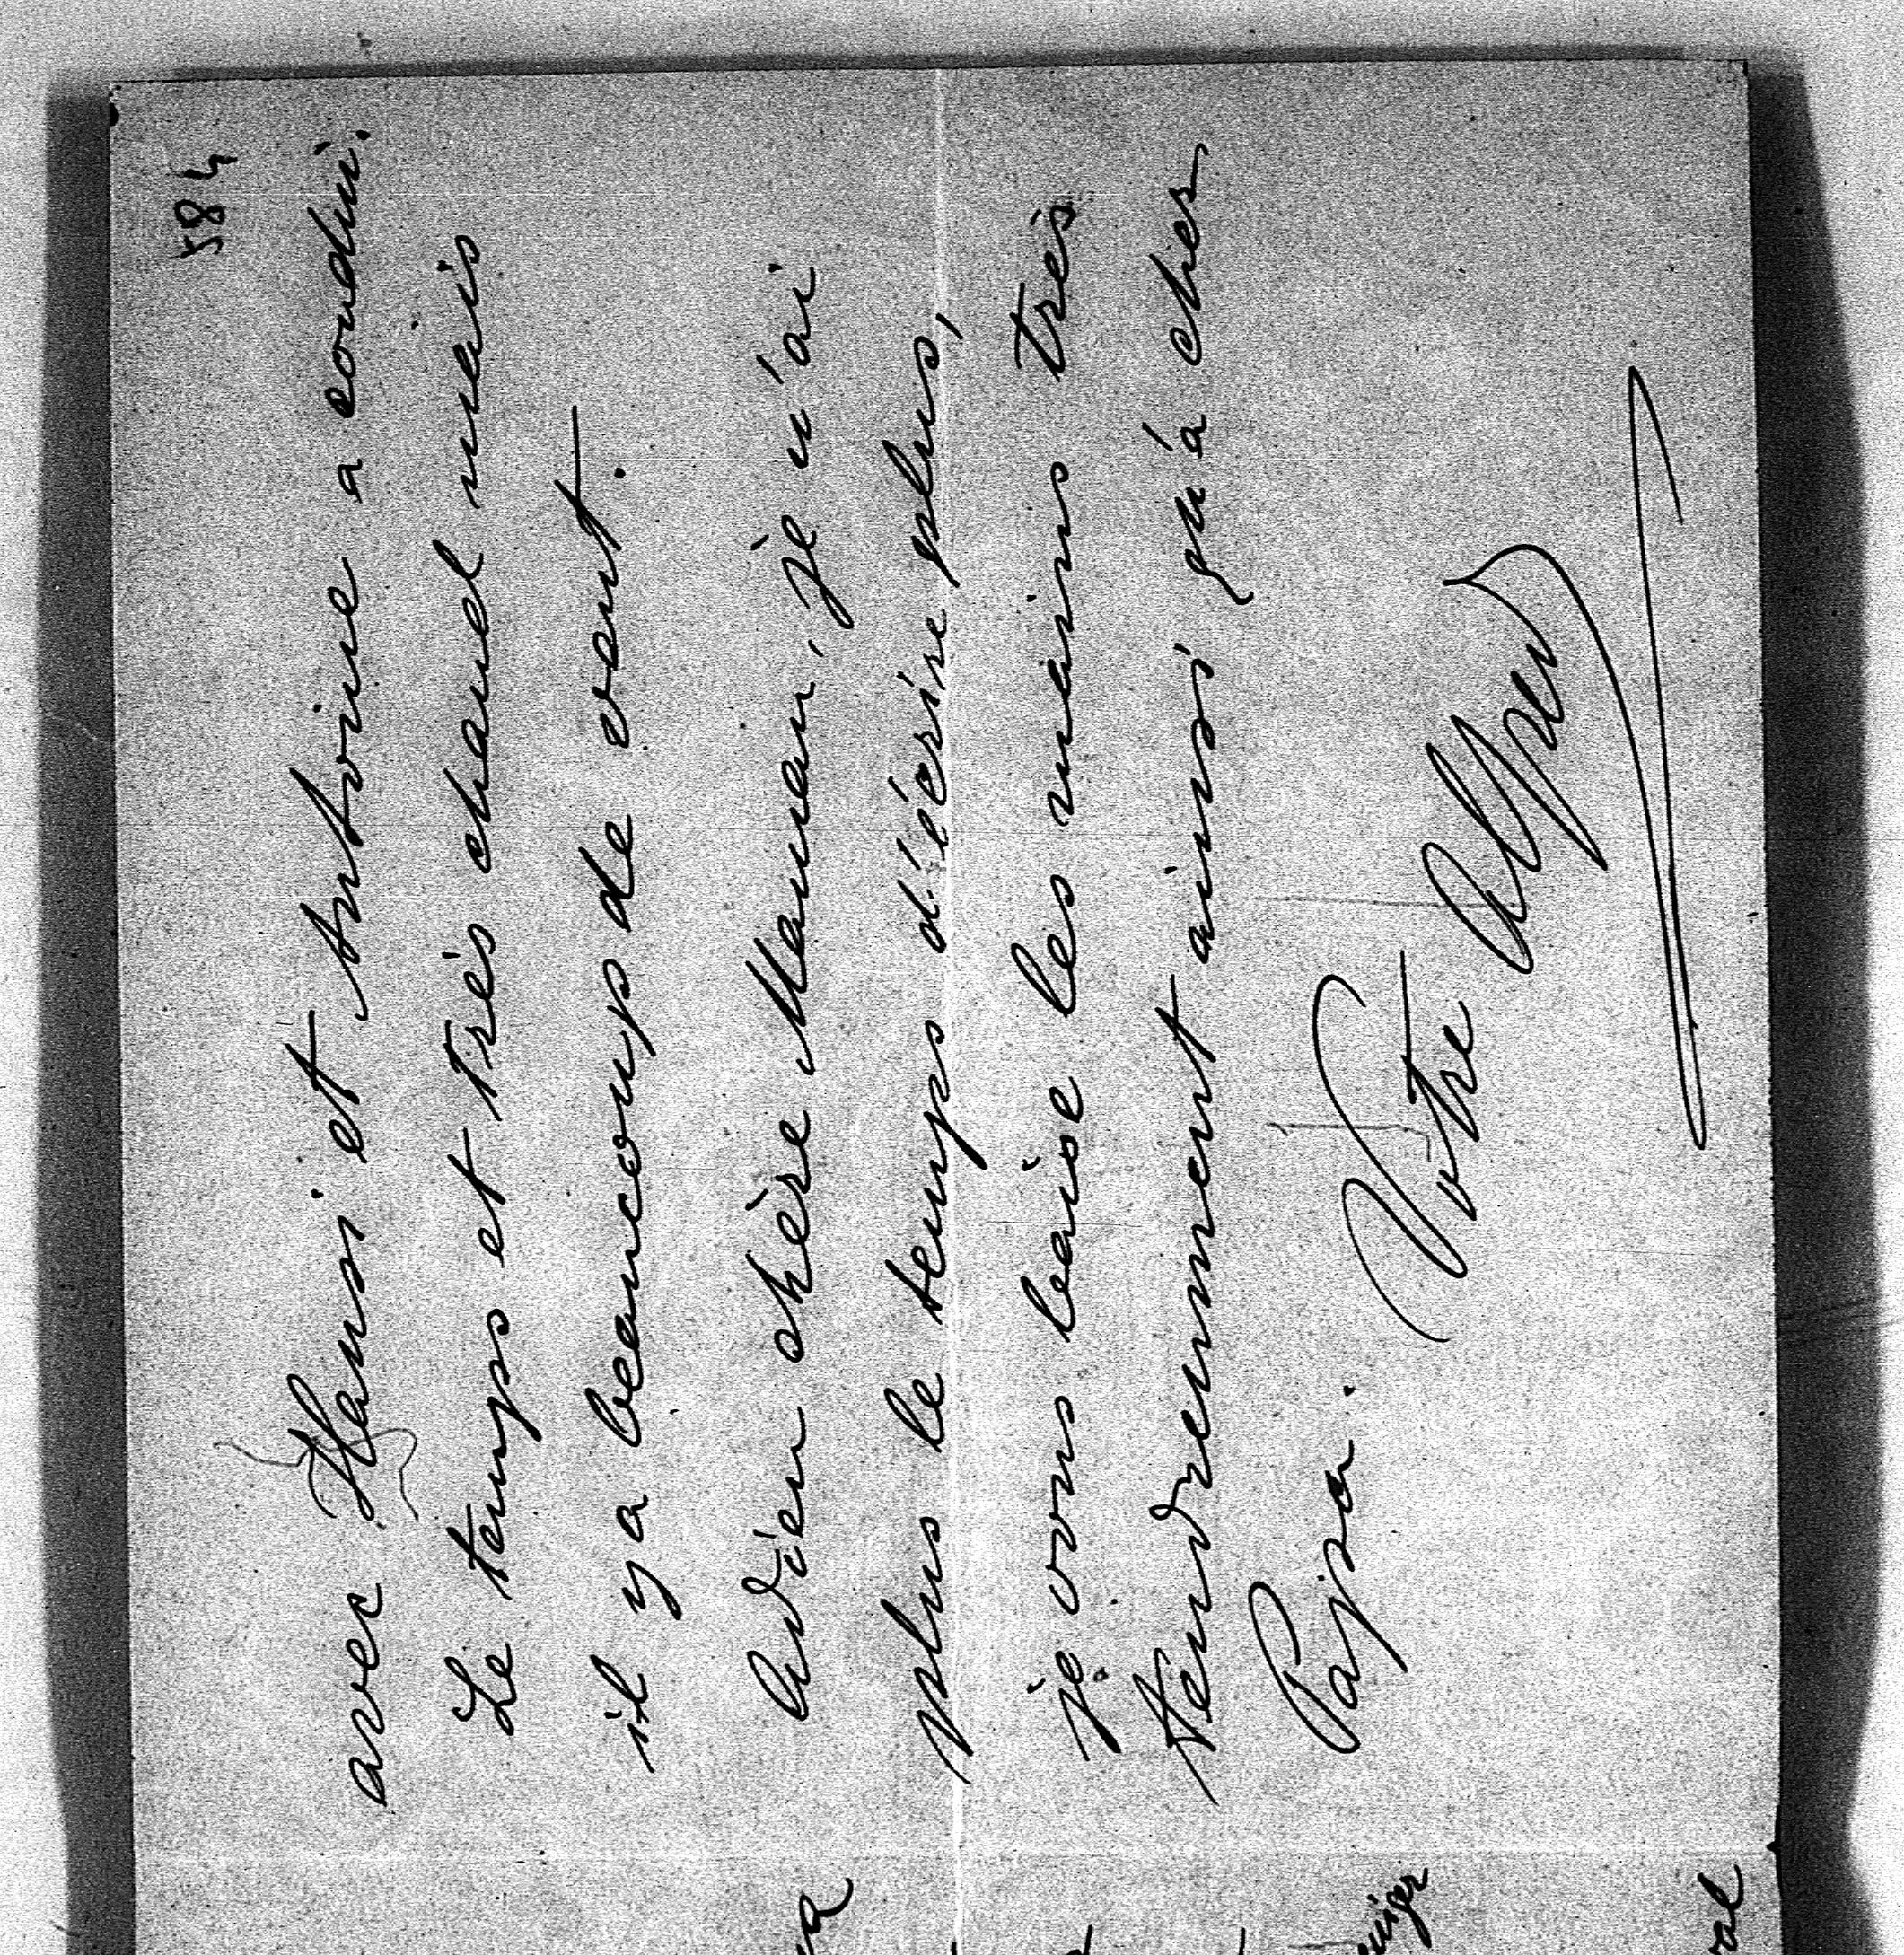 584
avec Hansi et Antoine a condui.
Le temps et trés chauel mais
il y a beaucoup de vent.
Adieu chère Maman, je n'ai
plus le temps d'écrire plus,
je vous baise les mains très
tendremment ainsi qu'á cher
Papa.
Votre Alfred